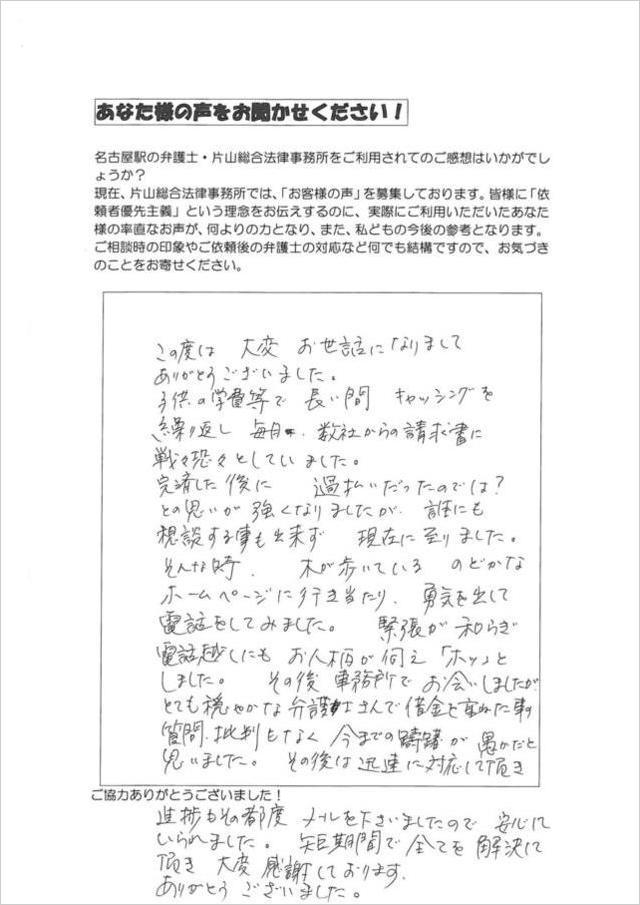 あなた様の声をお聞かせください！
名古屋駅の弁護士・片山総合法律事務所をご利用されてのご感想はいかがでし
ょうか？
現在、片山総合法律事務所では、「お客様の声」を募集しております。皆様に「依
頼者優先主義」という理念をお伝えするのに、実際にご利用いただいたあなた
様の率直なお声が、何よりの力となり、また、私どもの今後の参考となります。
ご相談時の印象やご依頼後の弁護士の対応など何でも結構ですので、お気づき
のことをお寄せください。
この度は 大変 お世話になりまして
ありがとうございました。
子供の学費等で 長い間 キャッシングを
繰り返し 毎月 数社からの請求書に
戦々恐々としていました。
完済した後に 過払いだったのでは？
との思いが強くなりましたが、誰にも
相談する事も出来ず 現在に至りました。
そんな時、 木が歩いている のどかな
ホームページに行き当たり、勇気を出して
電話をしてみました。 緊張が和らぎ
電話越しにも お人柄が伺え「ホッ」と
しました。 その後 事務所で お会いしましたが
とても穏やかな弁護士さんで借金を重ねた事の
質問、批判もなく 今までの躊躇が愚かだと
思いました。 その後は迅速に対応して頂き
ご協力ありがとうございました！
進捗もその都度 メールを下さいましたので 安心して
いられました。 短期間で全てを解決して
頂き 大変 感謝しております。
ありがとうございました。